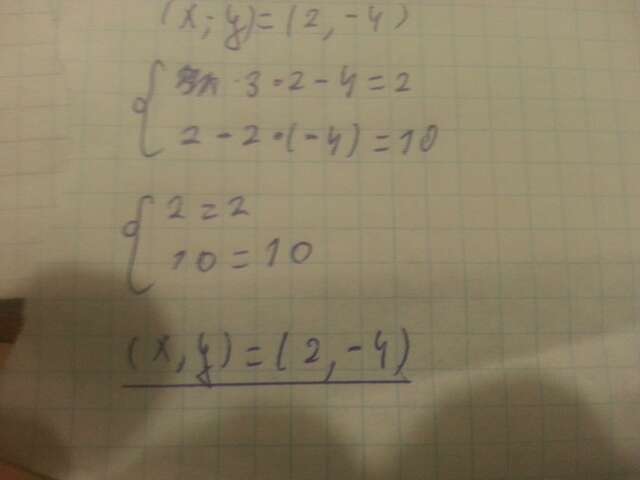 (x; y)=(2, -4)
3·2-4=2
2-2·(-4)=10
2=2
10=10
(x, y)=(2, -4)